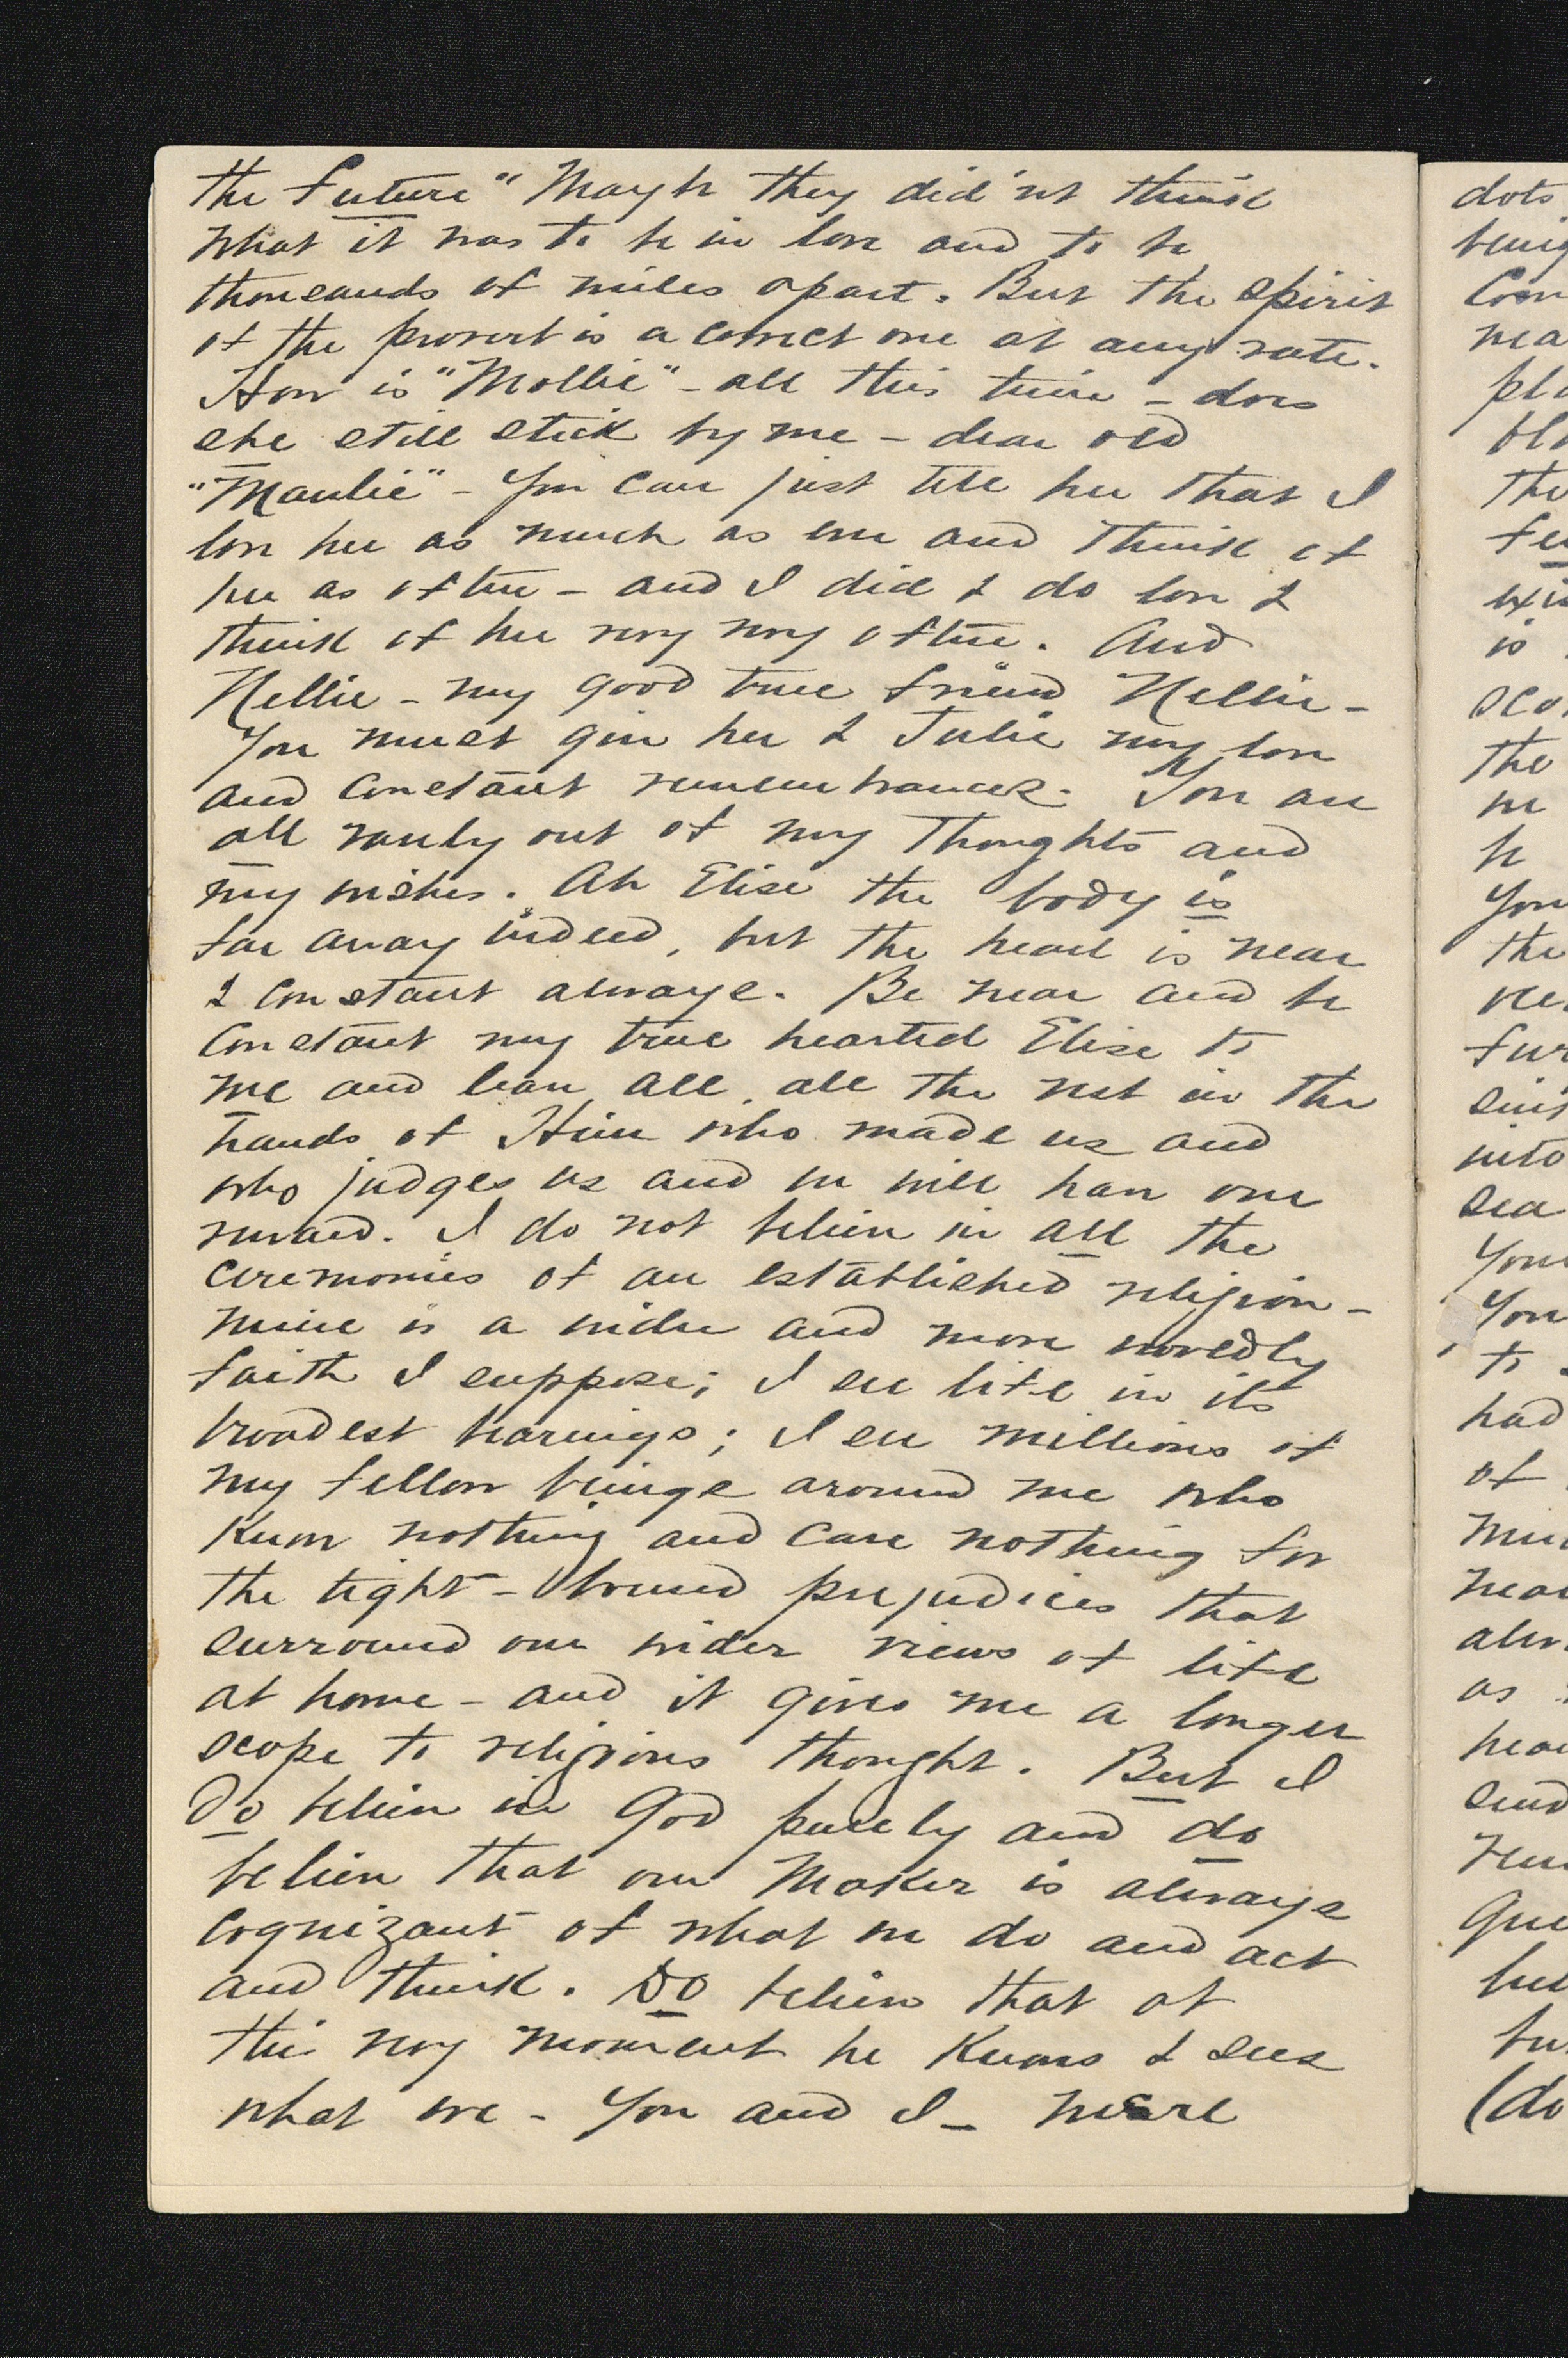 the future" Maybe they did'nt think
what it was to be in love and to be
thousands of miles apart. But the spirit
of the proverb is a correct one at any rate.
How is "Mollie" - all this time - does
she still stick by me - dear old
"Maulie" - You can just tell her that I
love her as much as ever and think of
her as often - and I did & do love &
think of her very very often. And
Nellie - my good true friend Nellie -
You must give her & Julie my love
and constant remembrances. You are
all rarely out of my thoughts and
my wishes. Ah Elise the body is
far away indeed, but the heart is near
& constant always. Be near and be
constant my true hearted Elise to
me and leave all, all the rest in the
hands of Him who made us and
who judges us and we will have our
reward. I do not believe in all the
ceremonies of an established religion -
mine is a wider and more worldly
faith I suppose; I see life in its
broadest bearings; I see millions of
my fellow beings around me who
know nothing and care nothing for
the tight-bound prejudices that
surround our wider views of life
at home - and it gives me a longer
scope to religious thought. But I
do believe in God purely and do
believe that our Maker is always
cognizant of what we do and act
and think. Do believe that at
this very moment he knows & sees
what we - You and I - were
dots
being
the
is
the
we
be
You
the
into
sea
You
to
had
of
as
(do